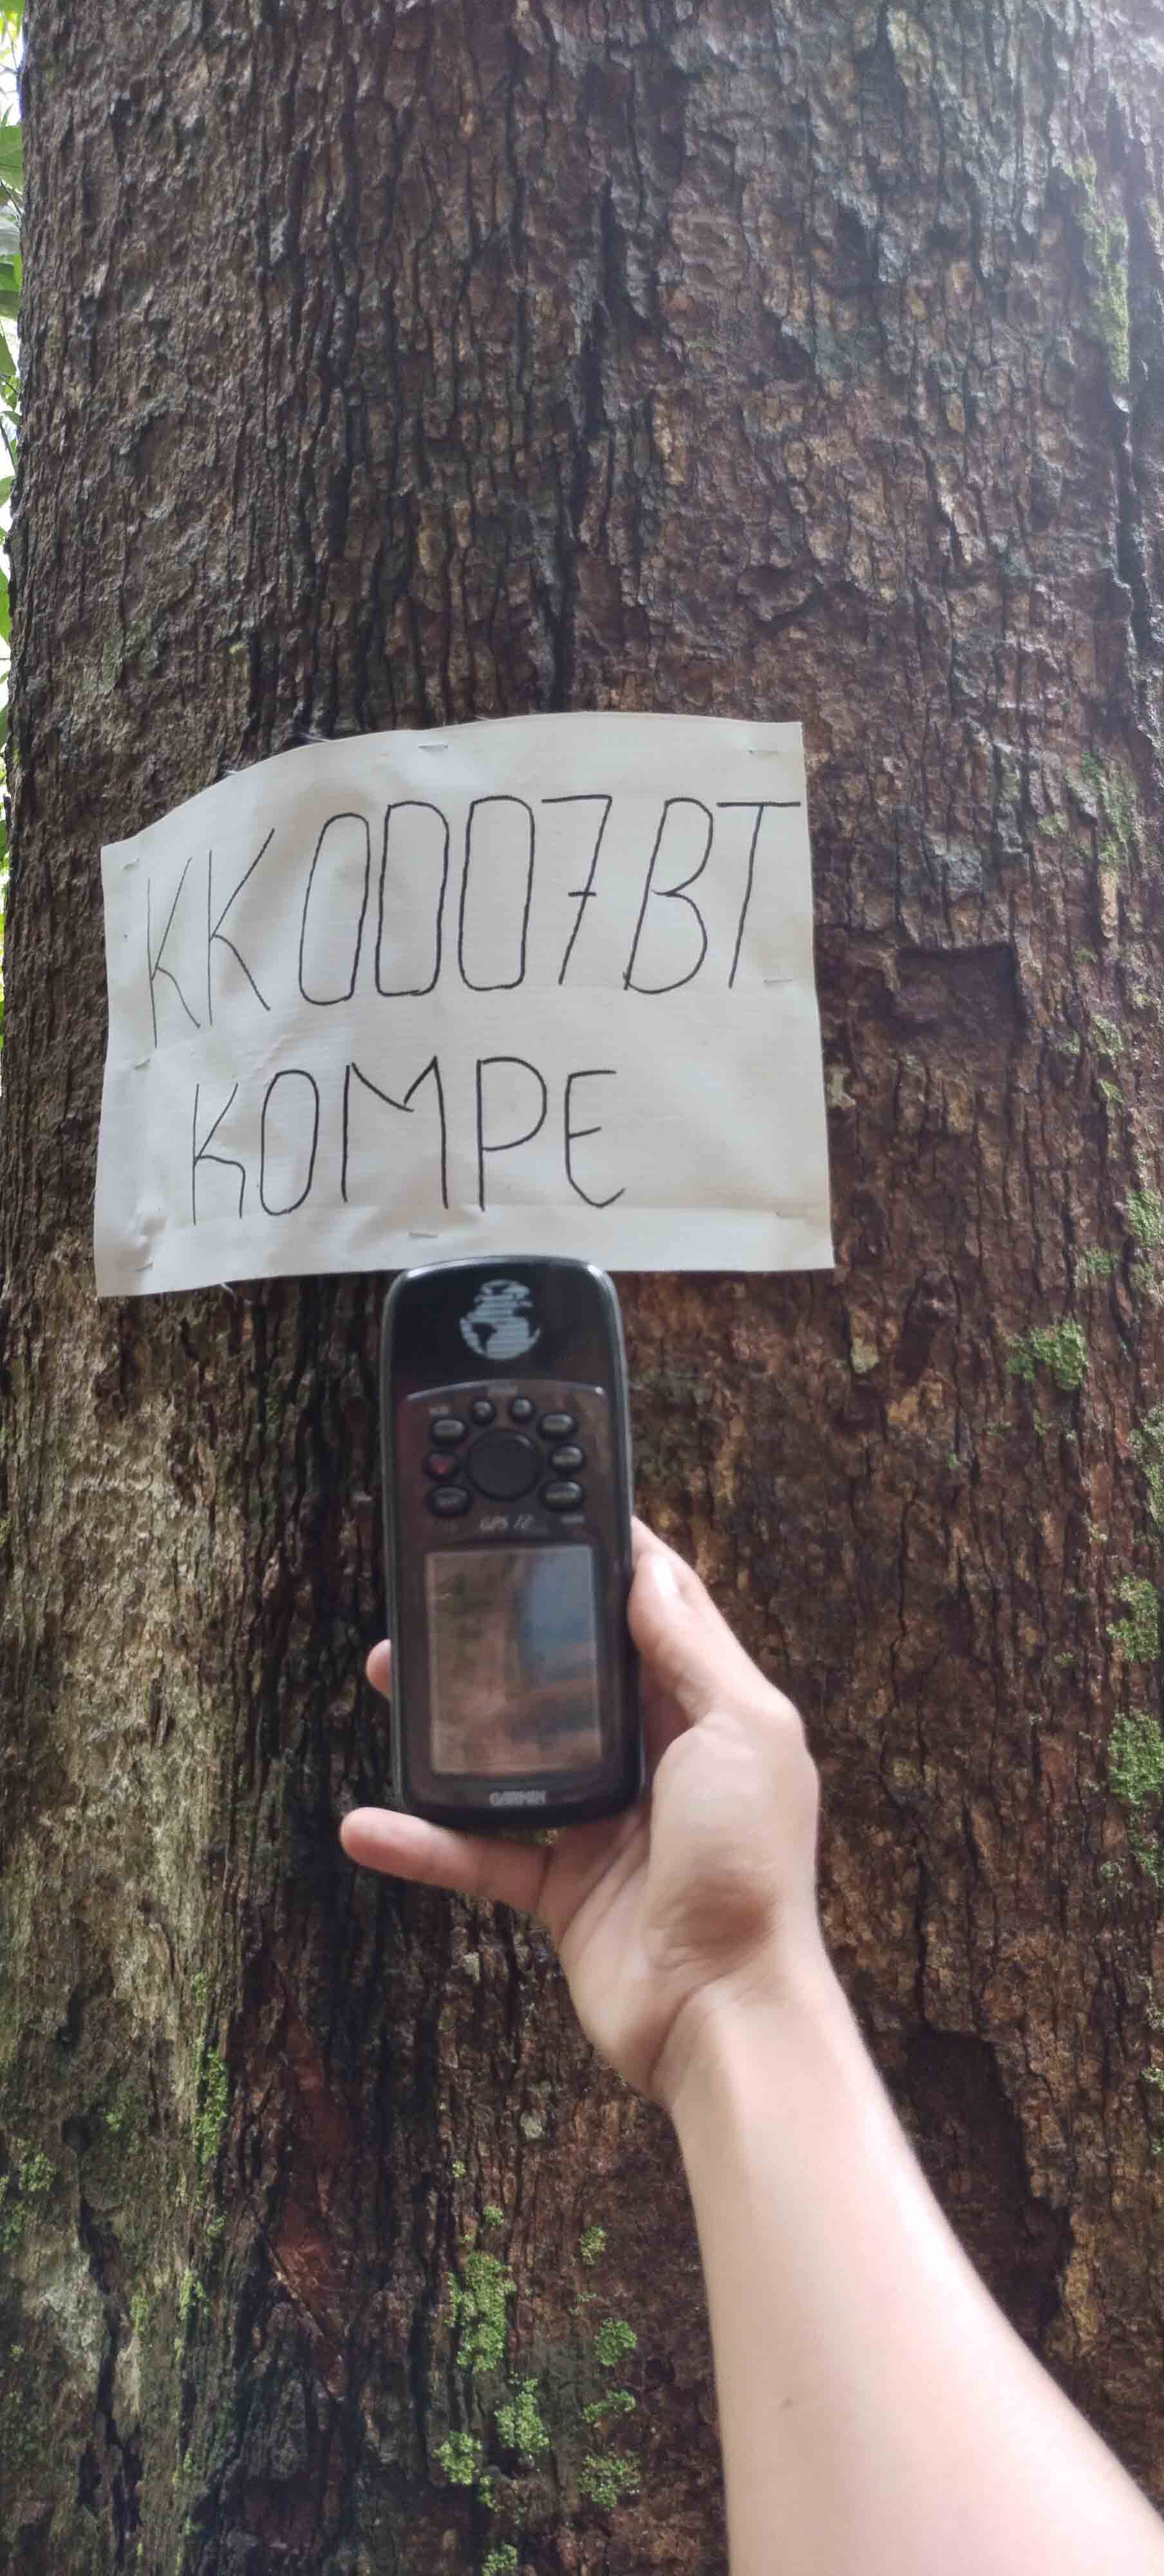 KK0007BT
KOMPE
GPS 12
GARMIN